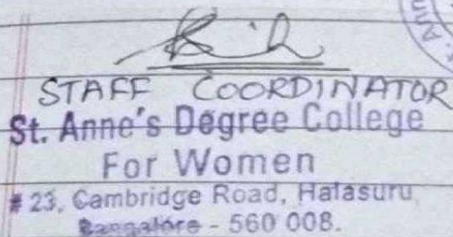 STAFF COORDINATOR
St. Anne's Degree College
For Women
# 23, Cambridge Road, Halasuru,
Bangalore - 560 008.